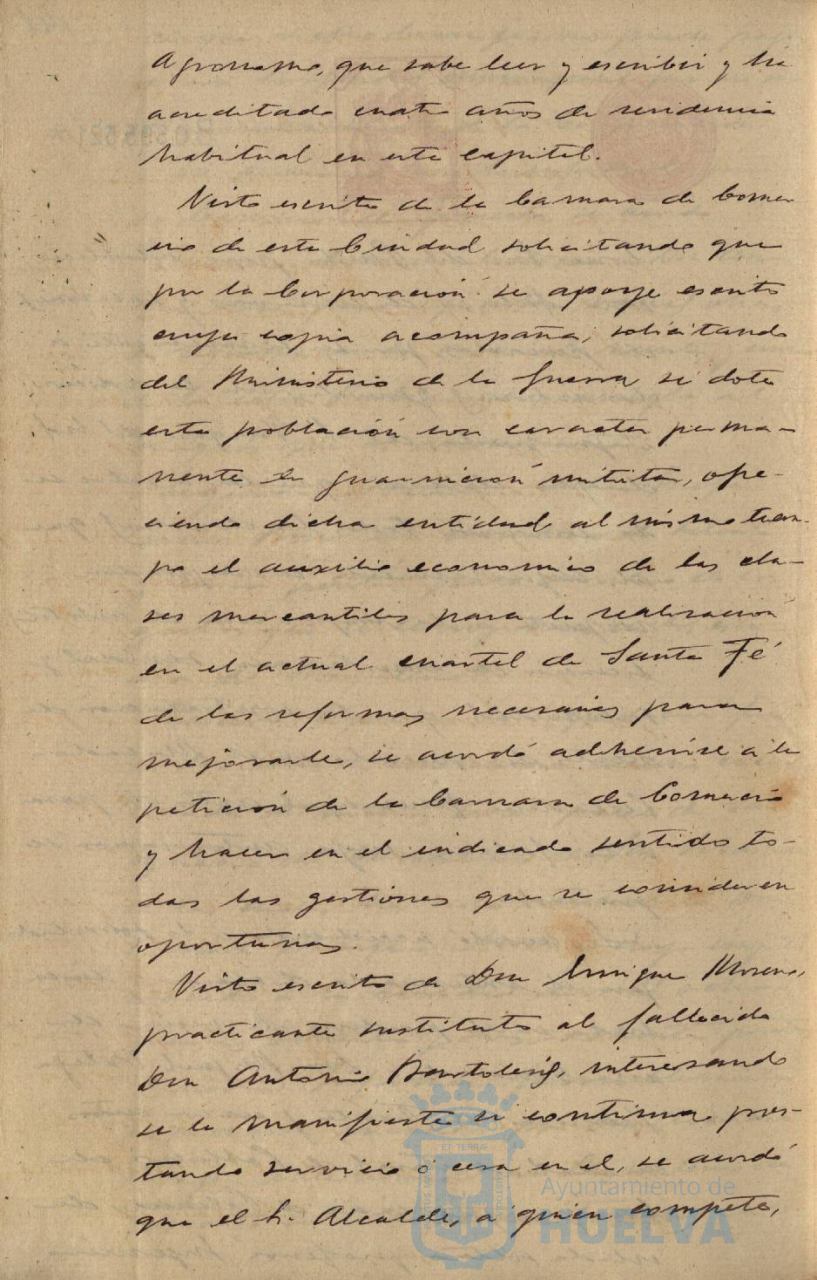 Agronomo, que sabe leer y escribir y ha
acreditado cuatro años de residencia
habitual en esta capital.
Visto escrito de la Camara de Comer
cio de esta Ciudad solicitando que
por la Corporación se apoye escrito
cuya copia acompaña, solicitando
del Ministerio de la Guerra se dote
esta población con caracter perma-
nente de guarnición militar, ofre-
ciendo dicha entidad al mismo tiem-
po el auxilio economico de las cla-
ses mercantiles para la realización
en el actual cuartel de Santa Fé
de las reformas necesarias para
mejorarle, se acordó adherirse a la
petición de la Camara de Comercio
y hacer en el indicado sentido to-
das las gestiones que se consideren
oportunas.
Visto escrito de Don Enrique Moreno,
practicante sustituto al fallecido
Don Antonio interesando
se le manifieste si continua pres-
tando servicio ó cesa en el, se acordó
que el Sr. Alcalde, a quien compete,
Ayuntamiento de
HUELVA